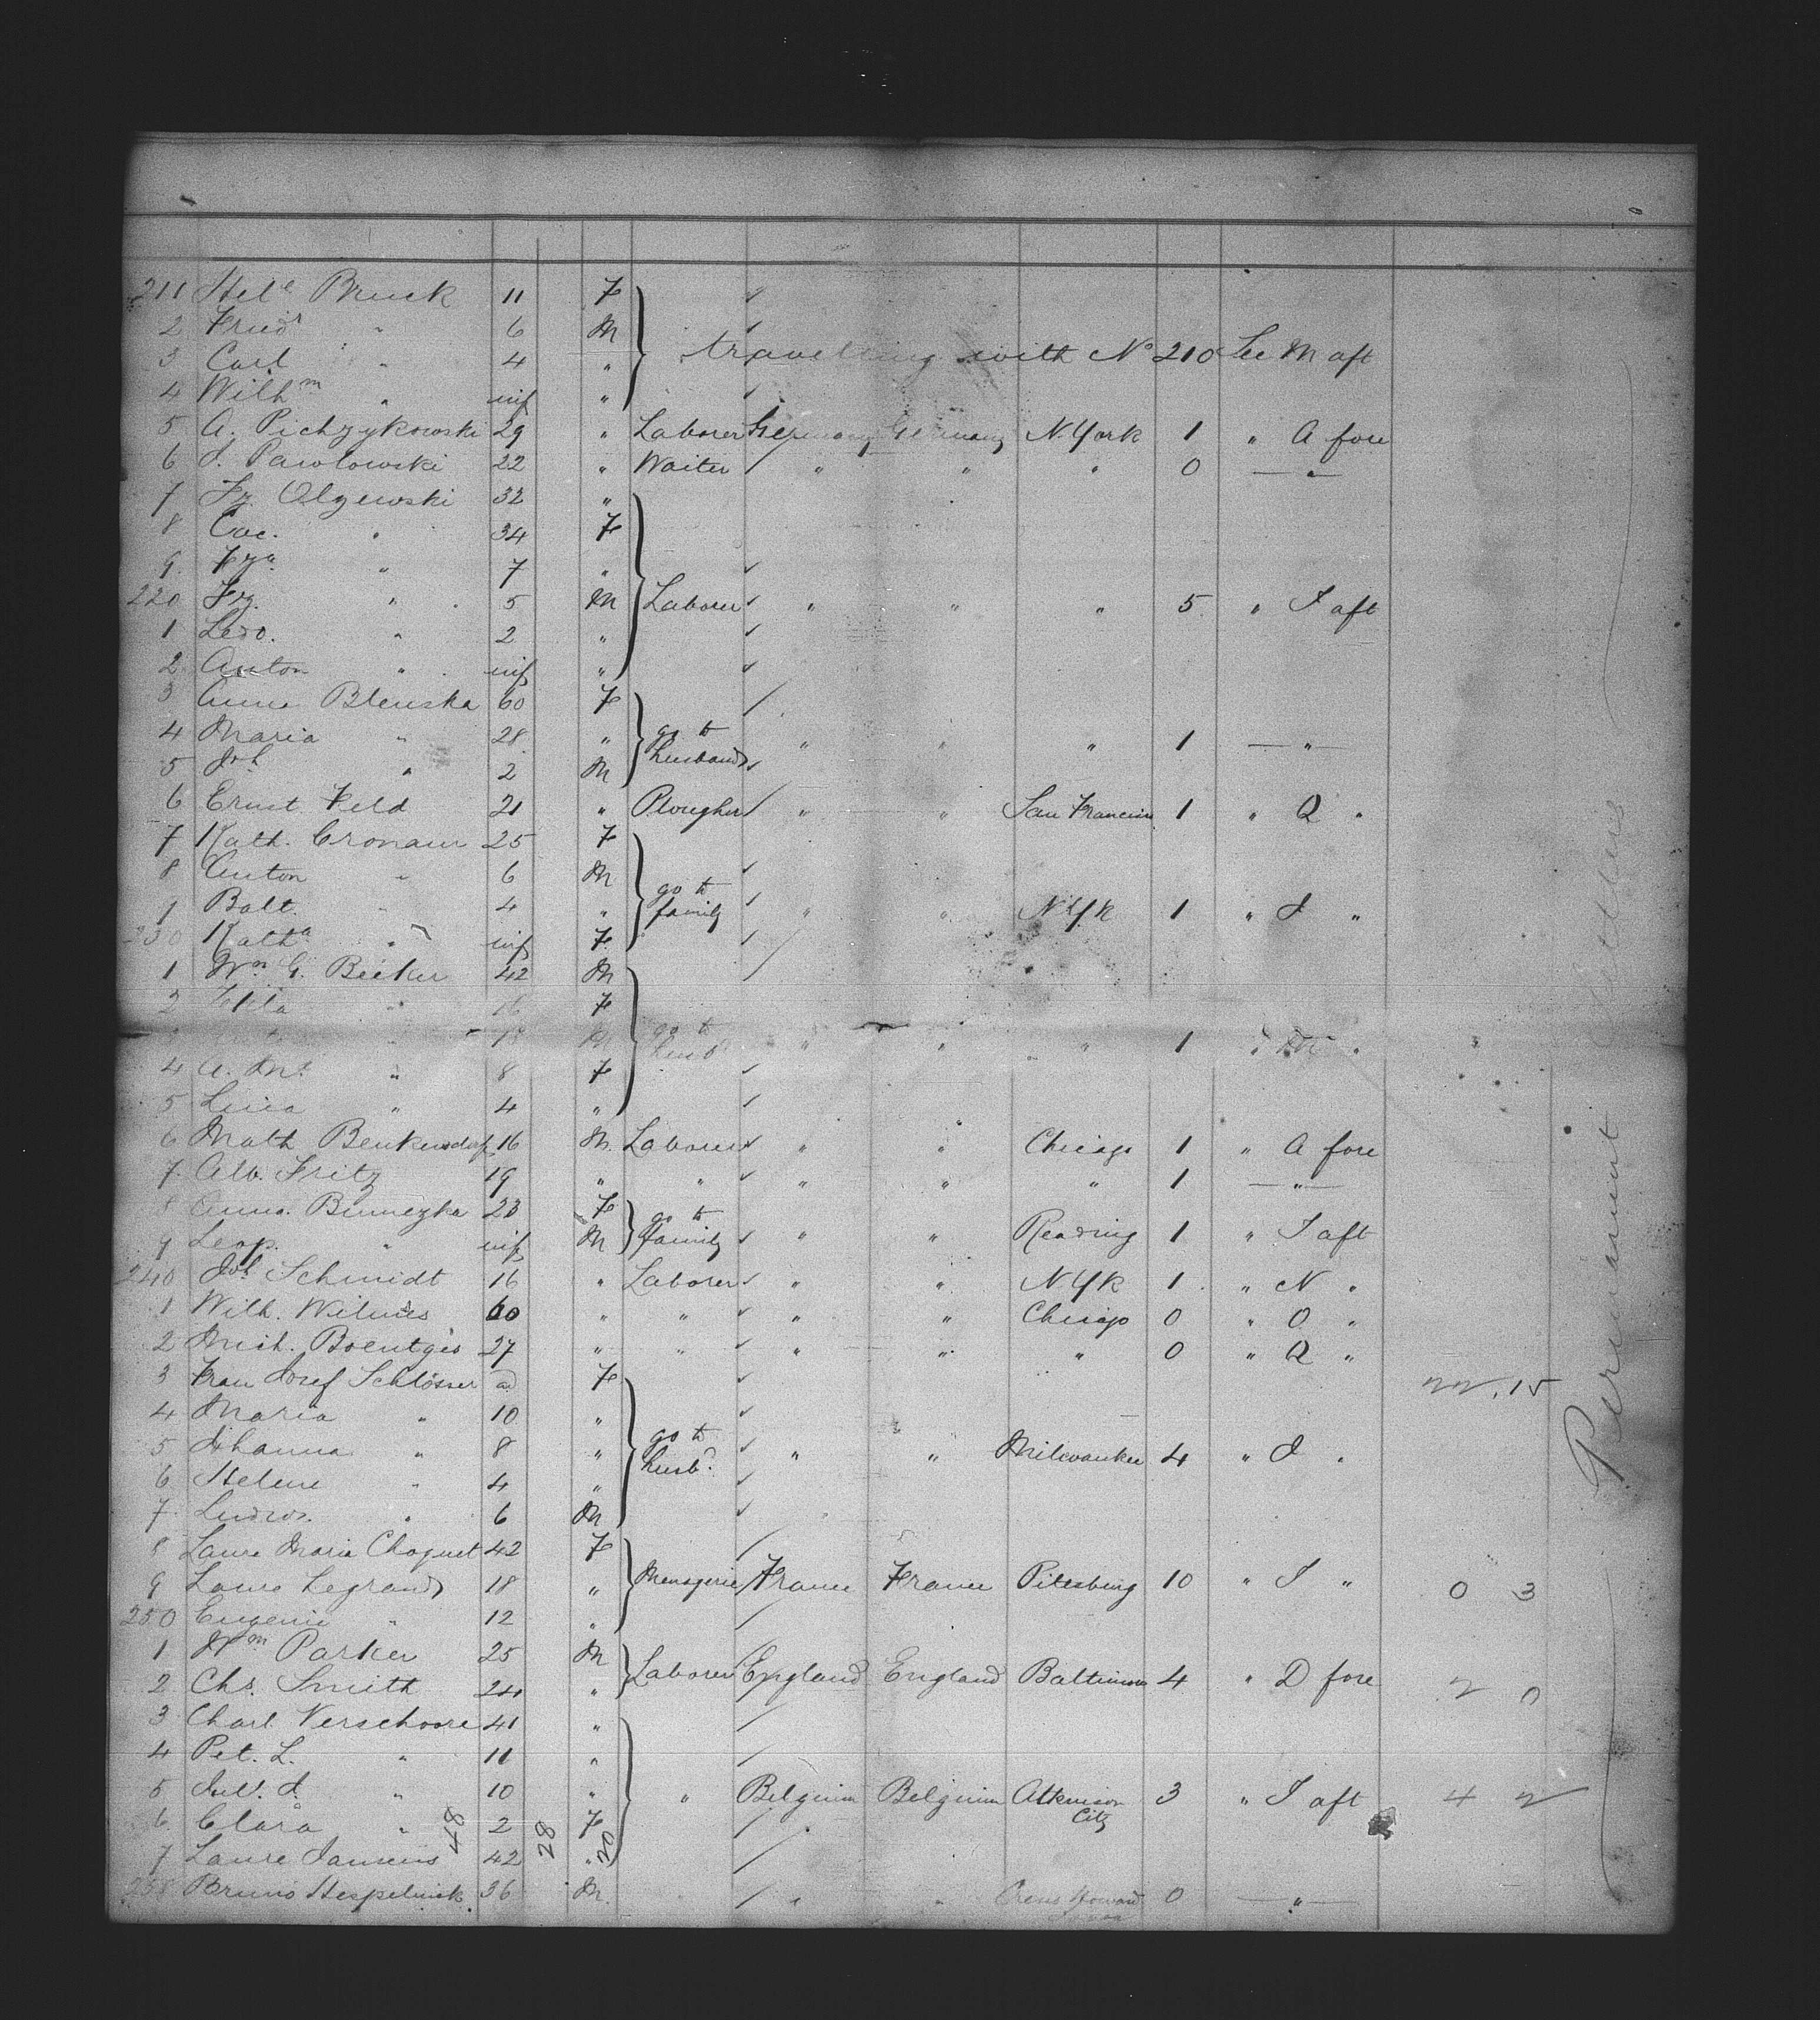 211 Hele Bruck 11 F
2 Friedr " 6 M
3 Carl " 4 " travelling with No 210 See M aft
4 Wilhm " inf "
5 A. Pichzykowski 29 " Laborer Germany Germany N.York 1 " A fore
6 J. Pawlowski 22 " Waiter " " " 0 — " —
7 Fz. Olzewski 32 "
8 Cae. " 34 F
9. Fza " 7 "
220 Fz. " 5 M Laborer " " " 5 " I aft
1 Ledo. " 2 "
2 Anton " inf "
3 Anna Blenska 60 F
4 Maria " 28 " go to husband " " " 1 — " —
5 Joh " 2 M
6 Ernst Feld 21 " Plougher " " San Francisco 1 " Q "
7 Kath. Cronaur 25 F
8 Anton " 6 M
1 Balt. " 4 " go to family " " N.Y.K 1 " J "
230 Katha " inf F
1 Wm G. Becker 42 M
2 " 16 F
" 18 M go to husbd " " " 1 " "
4 A. Ma " 8 F
5 Lina " 4 "
6 Math Benkendorf 16 M. Laborer " " Chicago 1 " A fore
7. Alb. Fritz 19 " " " " " 1 — " —
8 Anna. 23 F
9 Leop. " inf M go to family " " Reading 1 " I aft
240 Joh Schmidt 16 " Laborer " " N.Y.K 1. " N "
1 Wilh. Wilmes 60 " " " " Chicago 0 " O "
2 Mich. Boentges 27 " " " " " 0 " Q "
3 Frau Josef Schlösser ad F 22.15
4 Maria " 10 "
5 Johanna " 8 " go to husbd. " " Milwaukee 4 " J "
6 Helene " 4 "
7. Ludw. " 6 M
8 Laure Maria Choquet 42 F
9 Laure Legrand 18 " Menagerie France France Pittsburg 10 " I " 0 3
250 Eugenie " 12 "
1 Wm Parker 25 M
2 Chs. Smith 24 " Laborer England England Baltimore 4 " D fore 2 0
3 Charl Verschoore 41 "
4 Pet. L. " 11 "
5 Jul. J. " 10 " " Belgium Belgium Atkinson City 3 " I aft 4 2
6. Clara " 2 F
7 Laure Jansens 42 "
258 Bruno Hespelinck 36 M. " " 0 — " —
48 28 20
Permanent